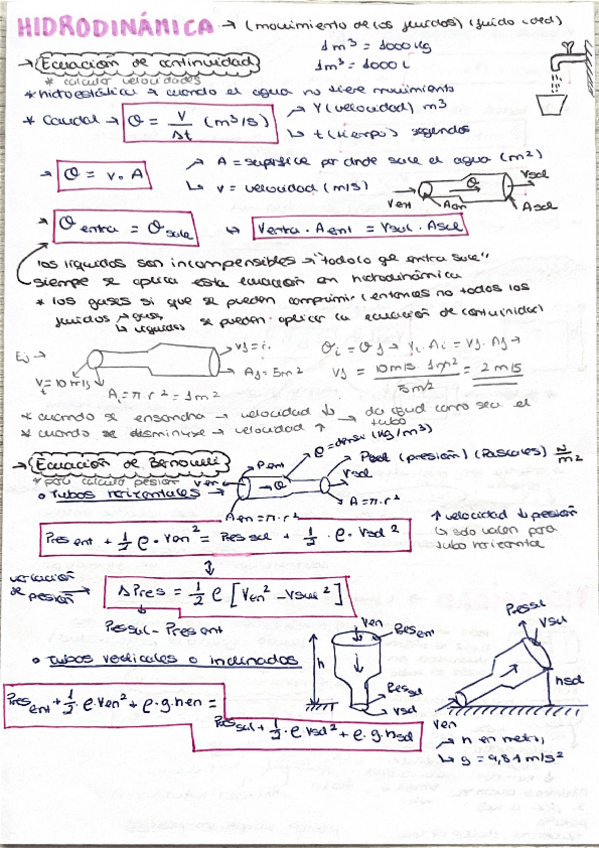 HIDRODINÁMICA → (movimiento de los fluidos) (fluido ideal)
1m³ = 1000 kg
1m³ = 1000 L
→ Ecuación de continuidad
* calcula velocidades
* hidroestática → cuando el agua no tiene movimiento
* Caudal → Q = V/Δt (m³/s) → V (velocidad) m³
↳ t (tiempo) segundos
→ Q = v · A → A = superficie por donde sale el agua (m²)
↳ v = velocidad (m/s)
Vent Aen Q Vsal Asal
→ Q entra = Q sale ↳ Ventra · Aent = Vsal · Asal
los líquidos son incompensibles → "todo lo qe entra sale"
siempre se aplica esta ecuación en hidrodinámica
* los gases si que se pueden comprimir (entonces no todos los
fluidos → gases
↳ líquidos se pueden aplicar la ecuación de continuidad)
Ej → vf = ¿ Qi = Qf → Vi · Ai = Vf · Af →
Vi = 10 m/s Af = 5m² Vf = 10 m/s · 1m² / 5m² = 2 m/s
Ai = π · r² = 1m²
* cuando se ensancha → velocidad ↓ → da igual como sea el
tubo
* cuando se disminuye → velocidad ↑
ρ = densi (kg/m³)
→ Ecuación de Bernoulli Pent Psal (presión) (Pascales) N/m²
* para calcular presión Ven Q Vsal
• Tubos horizontales → A = π · r²
Aen = π · r²
Pres ent + 1/2 ρ · Ven² = Pres sal + 1/2 · ρ · Vsal²
↑ velocidad ↓ presión
↳ solo valen para
tubo horizontal
↕
variación
de presión → Δ Pres = 1/2 ρ [Ven² - Vsal²]
Pres sal - Pres ent
• Tubos verticales o inclinados
h Ven Pres ent Pres sal Vsal
Pres sal Vsal hsal Ven
Pres ent + 1/2 · ρ · Ven² + ρ · g · hen =
Pres sal + 1/2 · ρ Vsal² + ρ · g · hsal
→ h en metros
↳ g = 9,81 m/s²